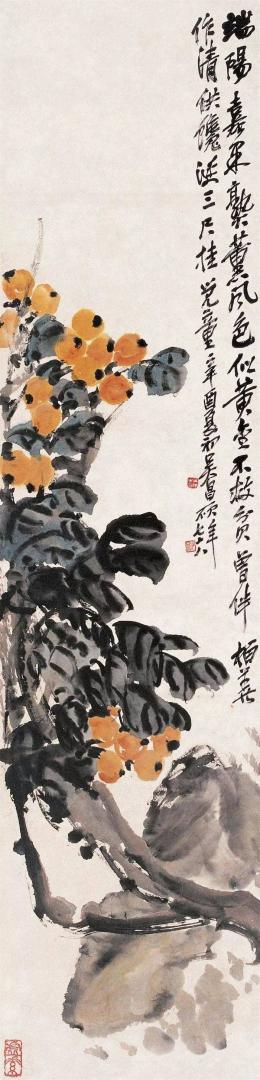 端陽嘉果熟薰風色似黃金不救貧曾伴榴花
作清供饞涎三尺挂兒童辛酉夏初吳昌碩年七十八